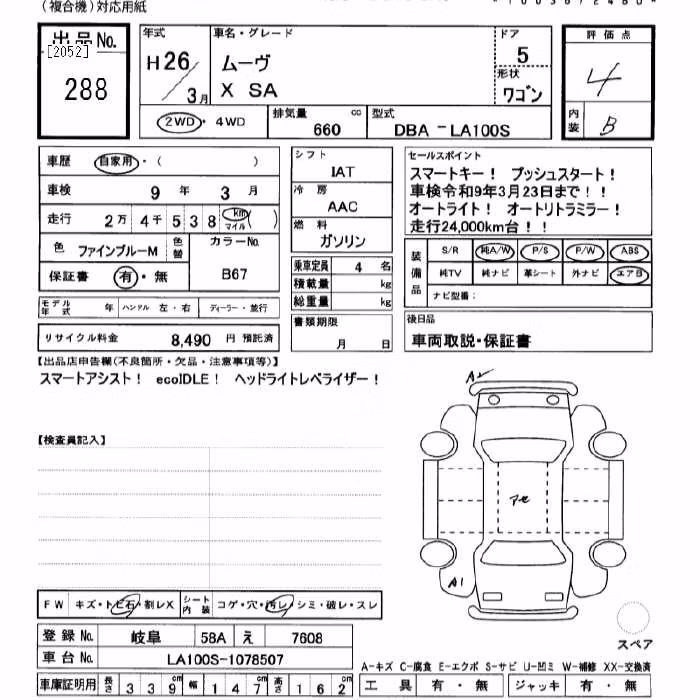 (複合機)対応用紙
出品No.
[2052]
288
年式
H26/3月
車名・グレード
ムーヴ
X SA
ドア
5
形状
ワゴン
評価点
4
内装
B
2WD・4WD
排気量 cc
660
型式
DBA -LA100S
車歴 自家用・( )
車検 9 年 3 月
走行 2万 4千 5 3 8 km マイル ( )
色 ファインブルーM 色替
カラーNo.
B67
保証書 有・無
モデル年式 年 ハンドル 左・右 ディーラー・並行
リサイクル料金 8,490 円 預託済
シフト
IAT
冷房
AAC
燃料
ガソリン
乗車定員 4 名
積載量 kg
総重量 kg
書類期限
月 日
セールスポイント
スマートキー! プッシュスタート!
車検令和9年3月23日まで!!
オートライト! オートリトラミラー!
走行24,000km台!!
装備品
S/R 純A/W P/S P/W ABS
純TV 純ナビ 革シート 外ナビ エアB
ナビ型番:
後日品
車両取説・保証書
【出品店申告欄(不良箇所・欠品・注意事項等)】
スマートアシスト! ecoIDLE! ヘッドライトレベライザー!
【検査員記入】
A2
アセ
A1
スペア
FW キズ・トビ石・割レX シート内装 コゲ・穴・汚レ・シミ・破レ・スレ
登録No. 岐阜 58A え 7608
車台No. LA100S-1078507
車庫証明用 長さ 339cm 幅 147cm 高さ 162cm
A-キズ C-腐食 E-エクボ S-サビ U-凹ミ W-補修 XX-交換済
工具 有・無 ジャッキ 有・無